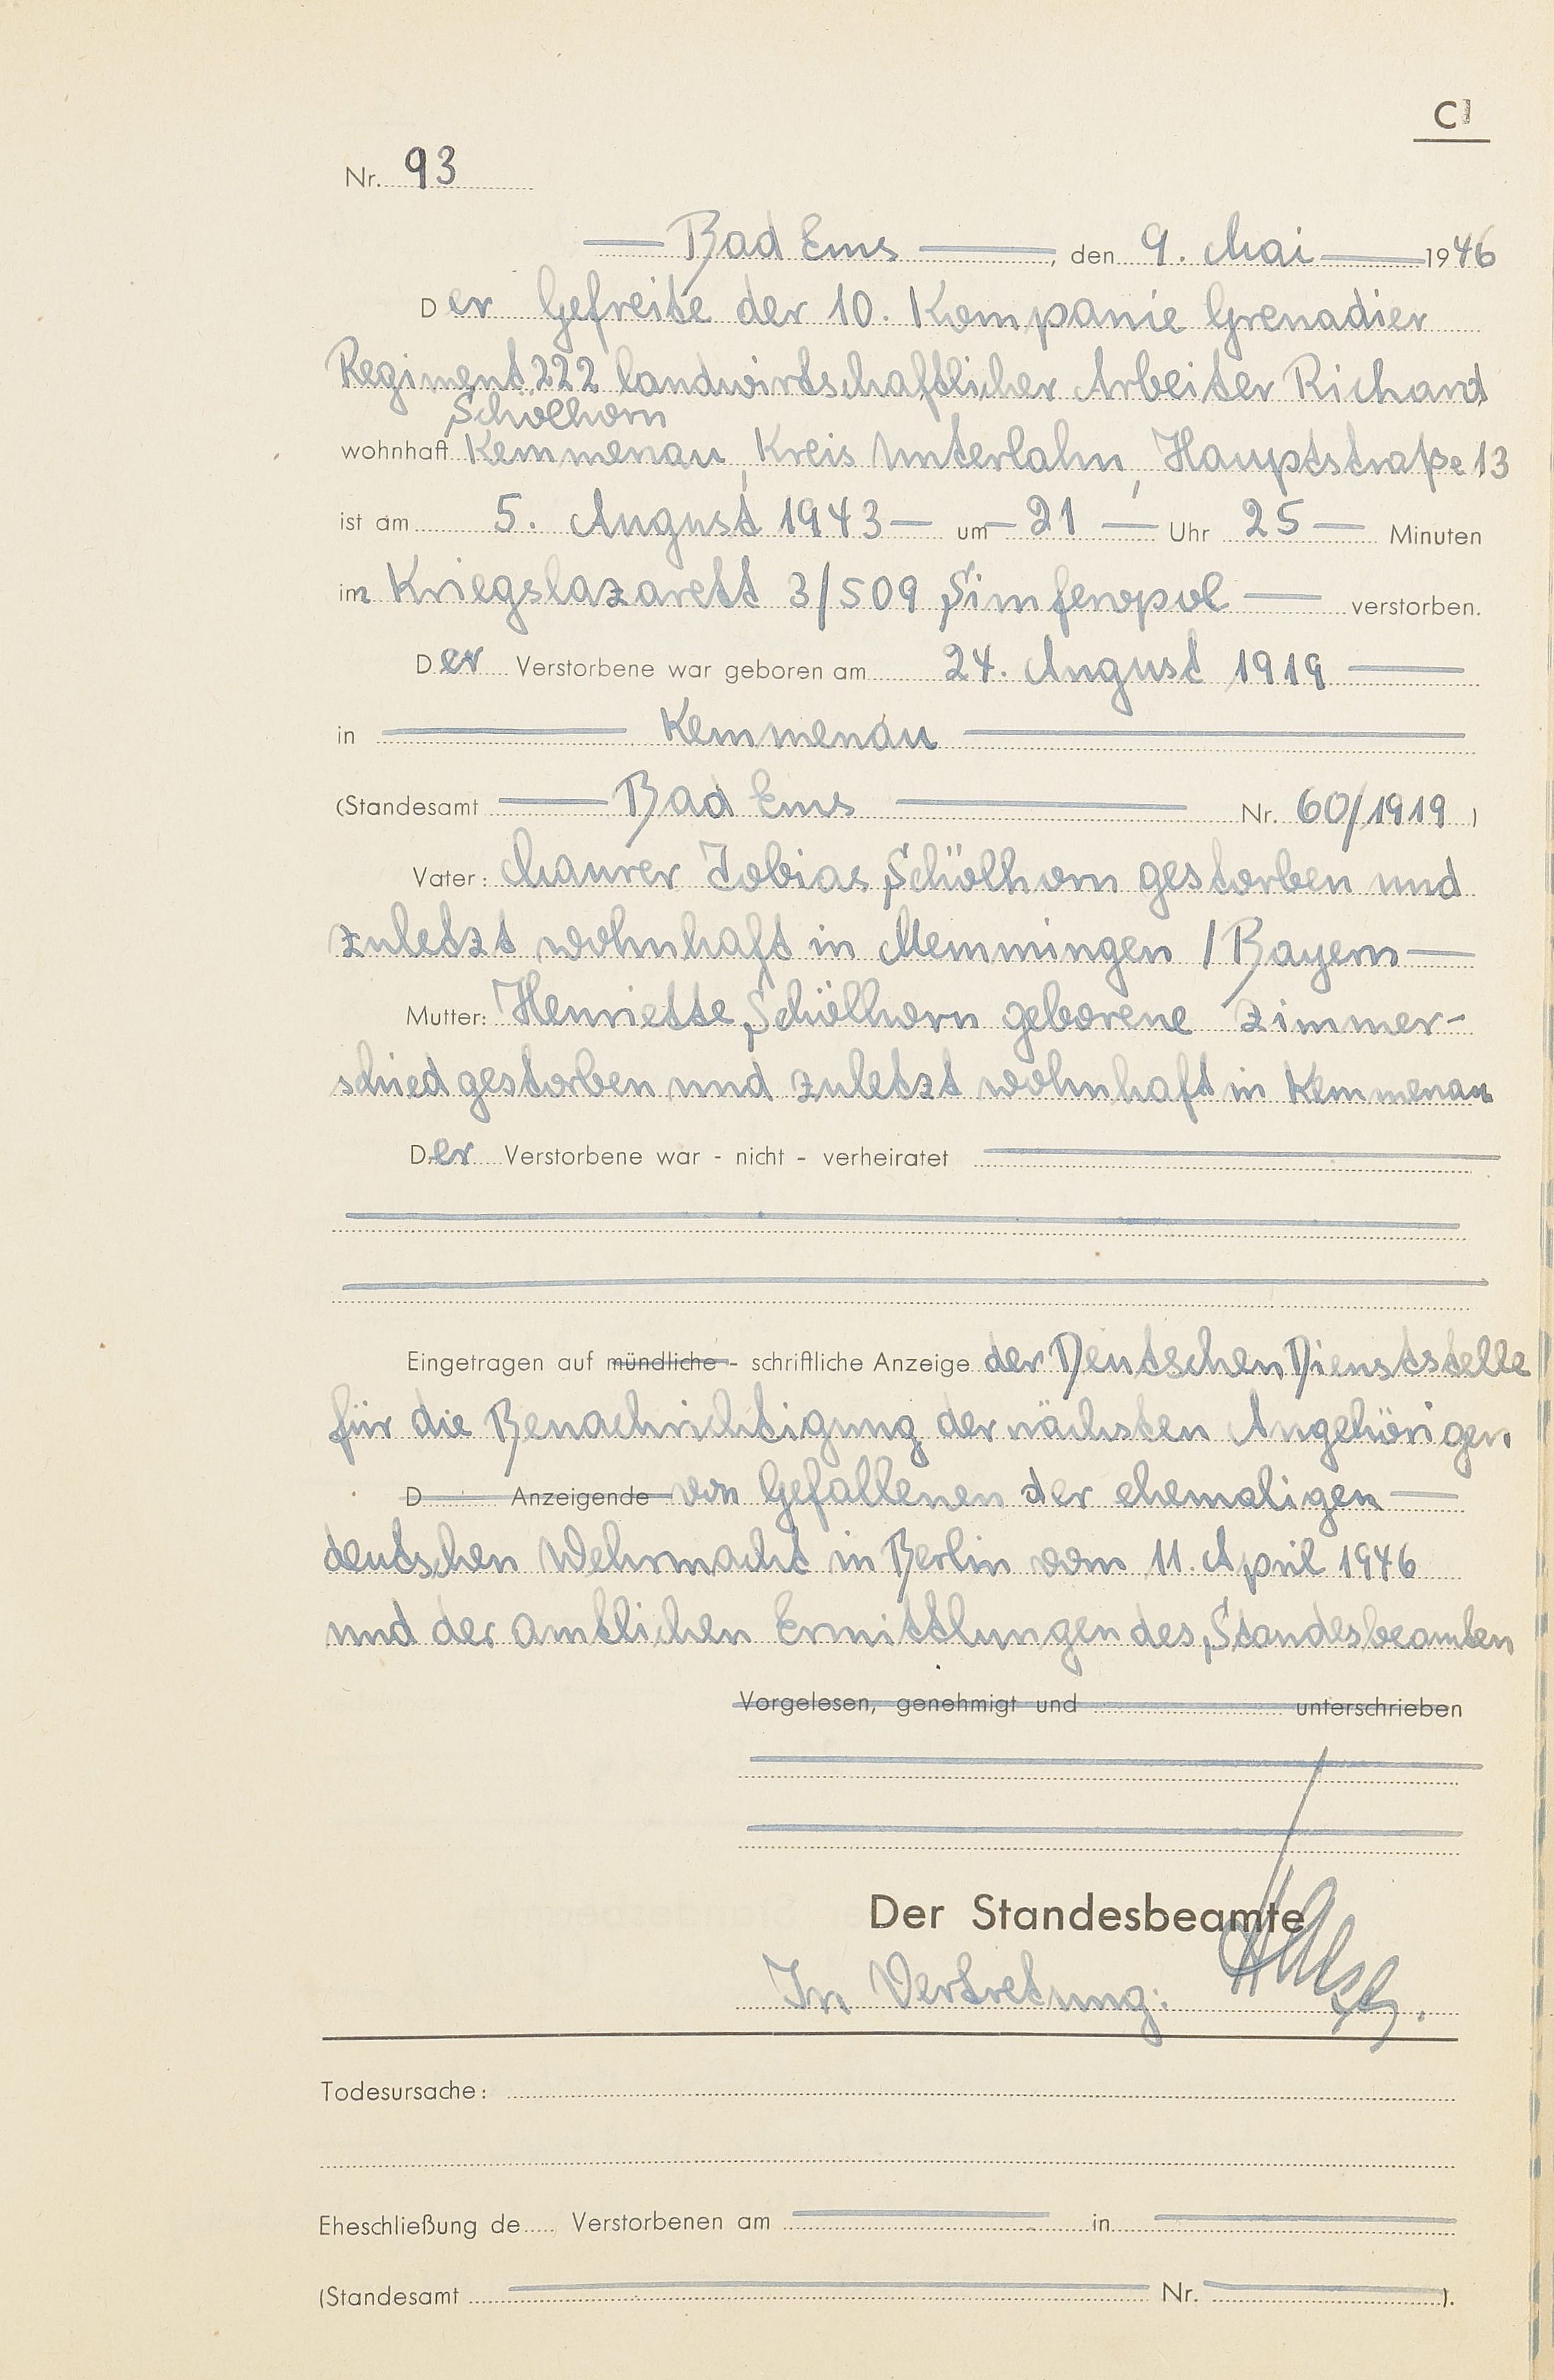 C1
Nr. 93
Bad Ems, den 9. Mai 1946
Der Gefreite der 10. Kompanie Grenadier
Regiment 222 landwirtschaftlicher Arbeiter Richard
Schölhorn
wohnhaft Kemmenau, Kreis Unterlahn, Hauptstraße 13
ist am 5. August 1943 um 21 Uhr 25 Minuten
im Kriegslazarett 3/509 Simferopol verstorben.
Der Verstorbene war geboren am 24. August 1919
in Kemmenau
(Standesamt Bad Ems Nr. 60/1919)
Vater: Maurer Tobias Schölhorn gestorben und
zuletzt wohnhaft in Memmingen / Bayern
Mutter: Henriette Schölhorn geborene Zimmer-
schied gestorben und zuletzt wohnhaft in Kemmenau
Der Verstorbene war - nicht - verheiratet
Eingetragen auf mündliche - schriftliche Anzeige der Deutschen Dienststelle
für die Benachrichtigung der nächsten Angehörigen
D Anzeigende von Gefallenen der ehemaligen
deutschen Wehrmacht in Berlin vom 11. April 1946
und der amtlichen Ermittlungen des Standesbeamten
Vorgelesen, genehmigt und unterschrieben
Der Standesbeamte
In Vertretung:
Todesursache:
Eheschließung de Verstorbenen am in
(Standesamt Nr. ).